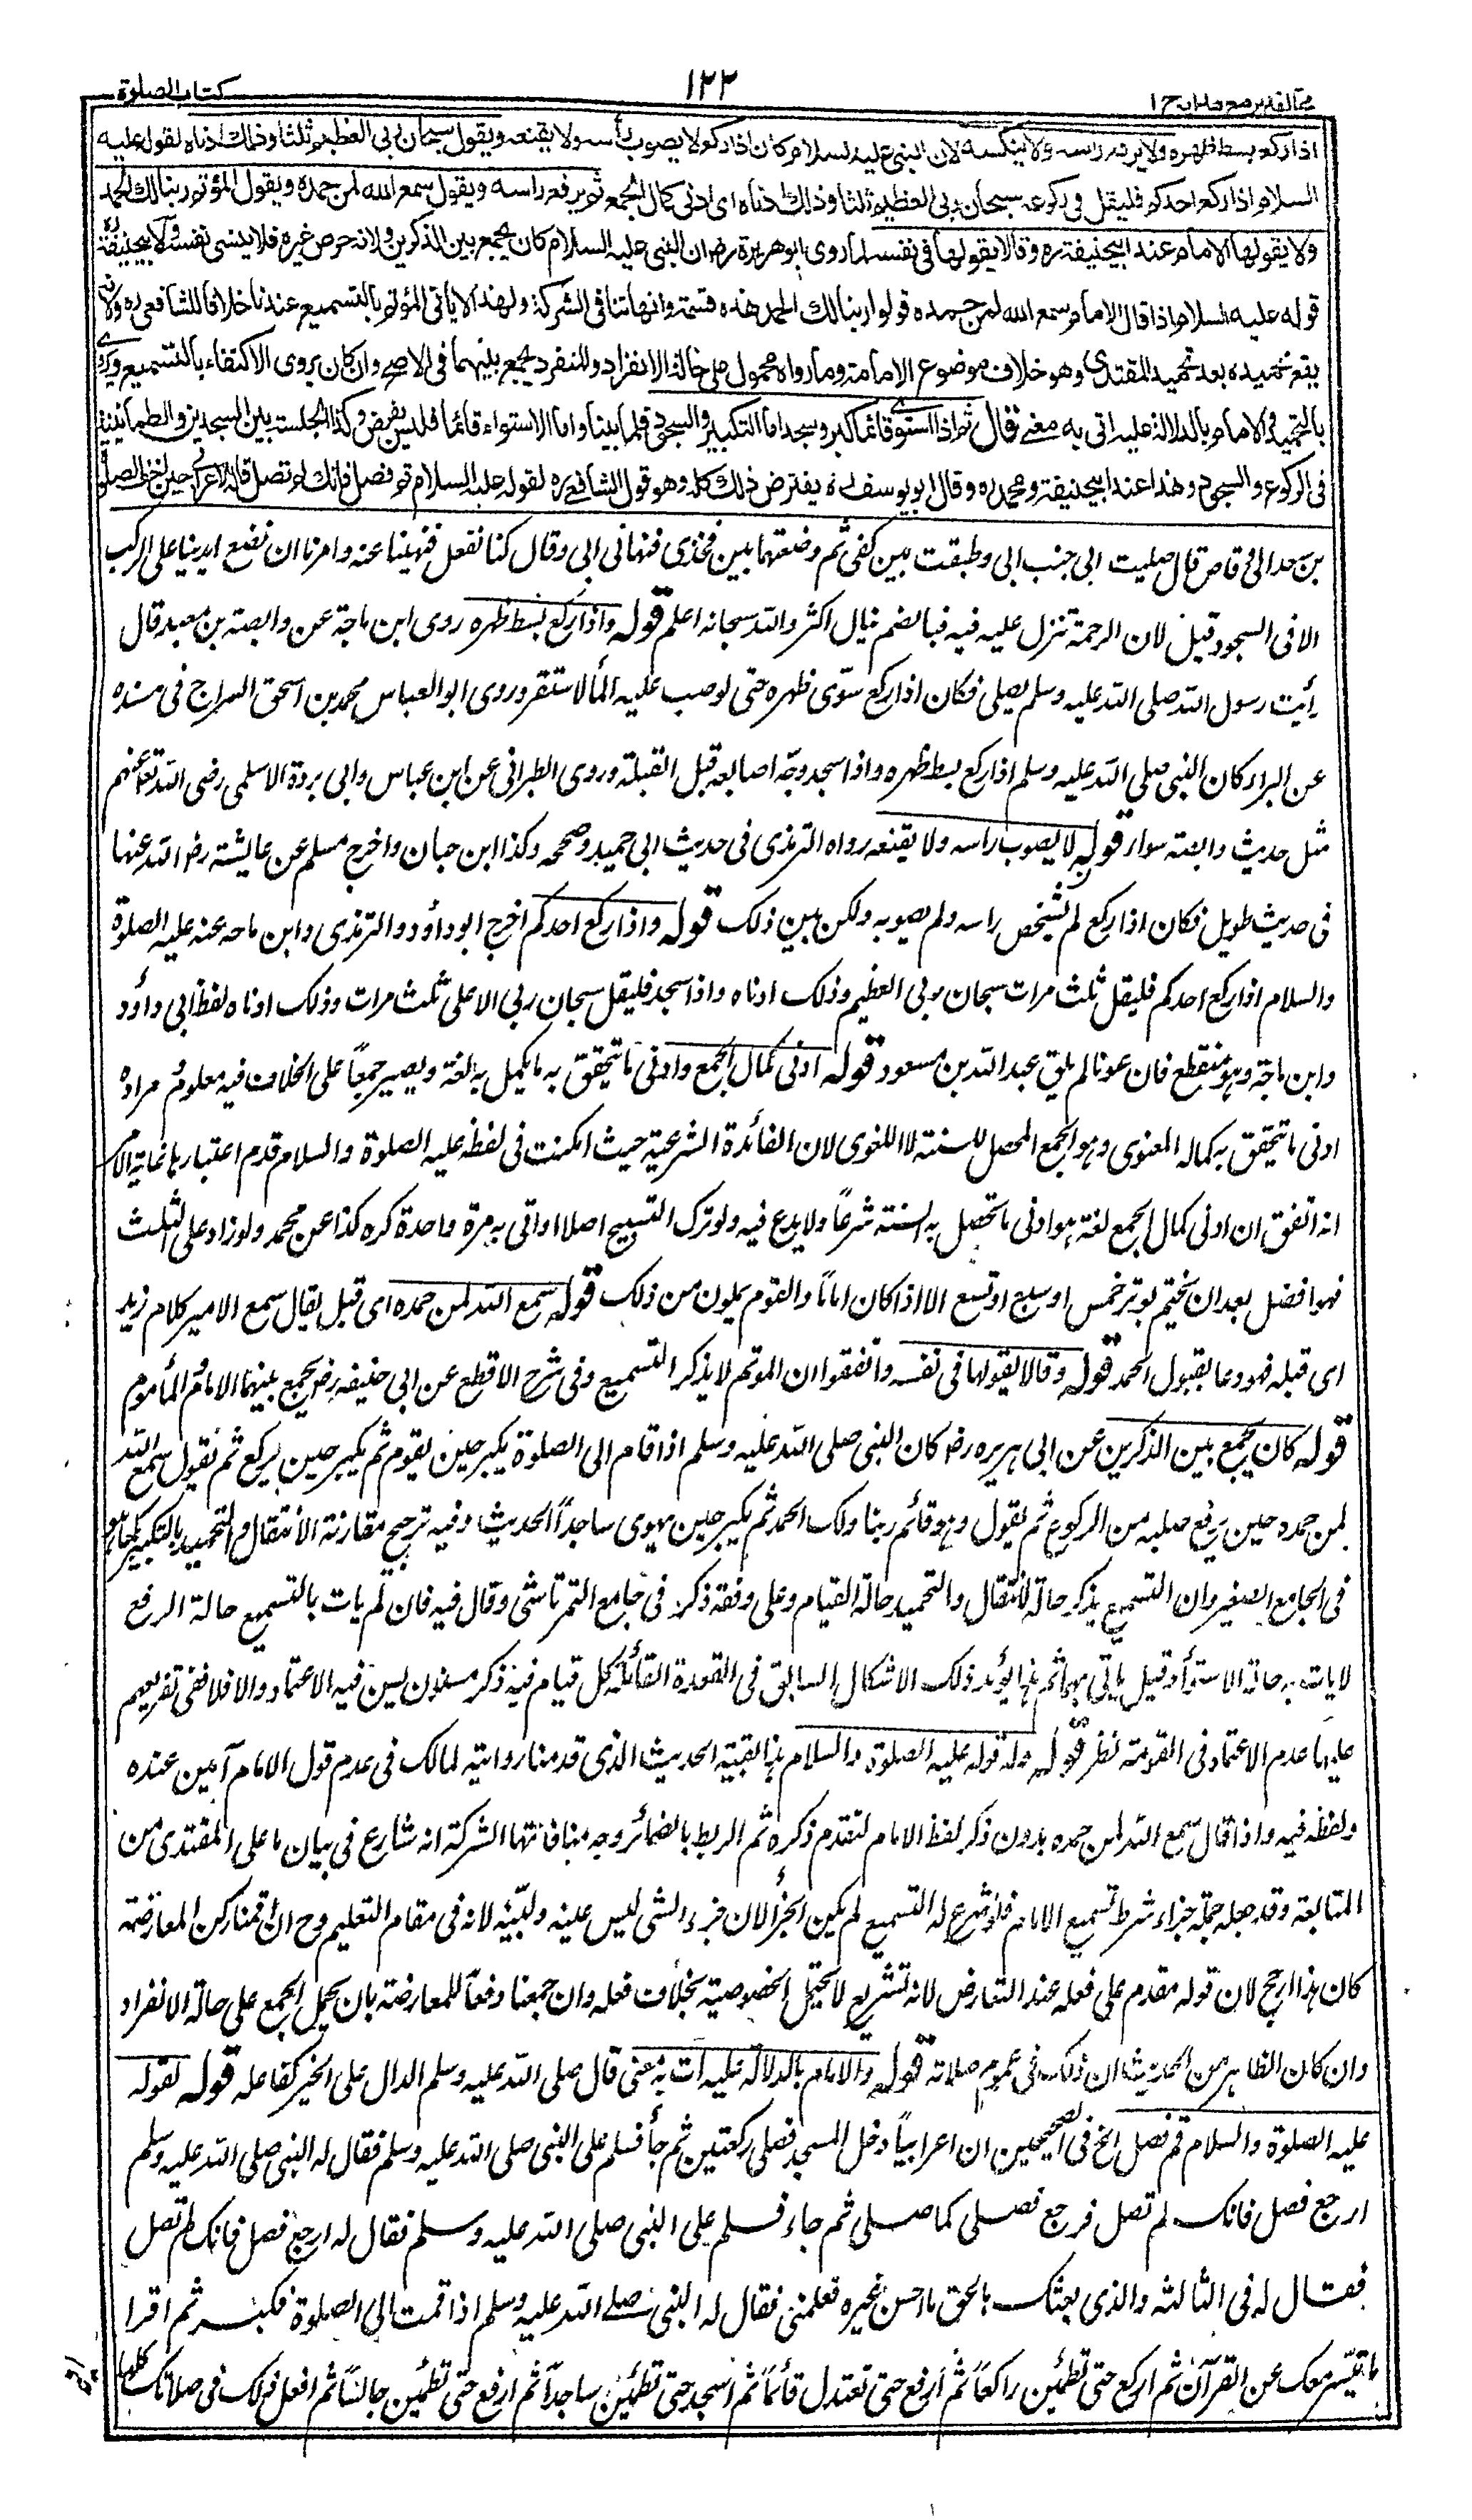 كتاب الصلوة
١٢٢
فتح القدير مع هدايه ج ١
اذا ركع بسط ظهره ولا يرفع راسه ولا ينكسه لان النبي عليه السلام كان اذا ركع لا يصوب رأسه ولا يقنعه ويقول سبحان ربي العظيم ثلثا وذلك ادناه لقوله عليه
السلام اذا ركع احدكم فليقل في ركوعه سبحان ربي العظيم ثلثا وذلك ادناه اى ادنى كمال الجمع ثم يرفع راسه ويقول سمع الله لمن حمده ويقول المؤتم ربنا لك الحمد
ولا يقولها الامام عند ابيحنيفة ره وقالا يقولها في نفسه لما روى ابو هريرة رض ان النبي عليه السلام كان يجمع بين الذكرين ولانه حرض غيره فلا ينسى نفسه ولابيحنيفة ره
قوله عليه السلام اذا قال الامام سمع الله لمن حمده قولوا ربنا لك الحمد هذه قسمة وانها تنافى الشركة ولهذا لا ياتى المؤتم بالتسميع عندنا خلافا للشافعى ره ولانه
يقع تحميده بعد تحميد المقتدى وهو خلاف موضوع الامامة وما رواه محمول على حالة الانفراد والمنفرد يجمع بينهما فى الاصح وان كان يروى الاكتفاء بالتسميع ويروى
بالتحميد والامام بالدلالة عليه اتى به معنى قال ثم اذا استوى قائما كبر وسجد اما التكبير والسجود فلما بينا واما الاستواء قائما فليس بفرض وكذا الجلسة بين السجدتين والطمانينة
فى الركوع والسجود وهذا عند ابيحنيفة ومحمد ره وقال ابو يوسف ره يفترض ذلك كله وهو قول الشافعى ره لقوله عليه السلام قم فصل فانك لم تصل قاله لاعرابى حين اخف الصلوة
بن سعد بن ابى وقاص قال صليت الى جنب ابى وطبقت بين كفى ثم وضعتهما بين فخذى فنهانى ابى وقال كنا نفعله فنهينا عنه وامرنا ان نضع ايدينا على الركب
الا فى السجود قيل لان الرحمة تنزل عليه فيه فبالضم ينال اكثر والله سبحانه اعلم قوله واذا ركع بسط ظهره روى ابن ماجة عن وابصة بن معبد قال
رأيت رسول الله صلى الله عليه وسلم يصلى فكان اذا ركع سوّى ظهره حتى لو صب عليه الماء لاستقر وروى ابو العباس محمد بن اسحق السراج فى مسنده
عن البراء كان النبى صلى الله عليه وسلم اذا ركع بسط ظهره واذا سجد وجّه اصابعه قبل القبلة وروى الطبرانى عن ابن عباس وابى برزة الاسلمى رضى الله تعالى عنهم
مثل حديث وابصة سواء قوله لا يصوب راسه ولا يقنعه رواه الترمذى فى حديث ابى حميد وصححه وكذا ابن حبان واخرج مسلم عن عائشة رض الله عنها
فى حديث طويل فكان اذا ركع لم يشخص راسه ولم يصوبه ولكن بين ذلك قوله واذا ركع احدكم اخرج ابو داود والترمذى وابن ماجه عنه عليه الصلوة
والسلام اذا ركع احدكم فليقل ثلث مرات سبحان ربى العظيم وذلك ادناه واذا سجد فليقل سبحان ربى الاعلى ثلث مرات وذلك ادناه لفظ ابى داود
وابن ماجة وهو منقطع فان عونا لم يلق عبد الله بن مسعود قوله ادنى كمال الجمع وادنى ما يتحقق به ما يكمل به لغة ويصير جمعاً على الخلاف فيه معلوم مراده
ادنى ما يتحقق به كماله المعنوى وهو الجمع المحصل للسنة لا اللغوى لان الفائدة الشرعية حيث امكنت فى لفظه عليه الصلوة والسلام قدم اعتبارها غاية الامر
انه اتفق ان ادنى كمال الجمع لغة هو ادنى ما تحصل به السنة شرعاً ولا بدع فيه ولو ترك التسبيح اصلا او اتى به مرة واحدة كره كذا عن محمد ولو زاد على الثلث
فهو افضل بعد ان يختم بوتر خمس او سبع او تسع الا اذا كان اماماً والقوم يملون من ذلك قوله سمع الله لمن حمده اى قبل يقال سمع الامير كلام زيد
اى قبله فهو دعاء بقبول الحمد قوله وقالا يقولها فى نفسه واتفقوا ان المؤتم لا يذكر التسميع وفى شرح الاقطع عن ابى حنيفه رض يجمع بينهما الامام والمأموم
قوله كان يجمع بين الذكرين عن ابى هريره رض كان النبى صلى الله عليه وسلم اذا قام الى الصلوة يكبر حين يقوم ثم يكبر حين يركع ثم يقول سمع الله
لمن حمده حين يرفع صلبه من الركوع ثم يقول وهو قائم ربنا ولك الحمد ثم يكبر حين يهوى ساجداً الحديث وفيه ترجيح مقارنة الانتقال والتحميد بالتكبير كما هو
فى الجامع الصغير وان التسميع يذكر حالة الانتقال والتحميد حالة القيام وعلى وفقه ذكر فى جامع التمرتاشى وقال فيه فان لم يات بالتسميع حالة الرفع
لا يات به حالة الاستواء وقيل ياتى بهما ثم هذا يؤيد ذلك الاشكال السابق فى القعدة القائلة كل قيام فيه ذكر مسنون يسن فيه الاعتماد والا فلا ففى تفريعهم
عليها عدم الاعتماد فى القومة نظر قوله وله قوله عليه الصلوة والسلام هذا بقية الحديث الذى قدمنا روايته لمالك فى عدم قول الامام آمين عنده
ولفظه فيه واذا قال سمع الله لمن حمده بدون ذكر لفظ الامام لتقدم ذكره ثم الربط بالضمائر وجه منافاتها الشركة انه شارع فى بيان ما على المقتدى من
المتابعة وقد جعله جملة جزاء شرط تسميع الامام فلو شرع له التسميع لم يكن الجزاء لان جزاء الشى ليس عينه ولبيّنه لانه فى مقام التعليم وح ان اقمنا ركن المعارضة
كان هذا ارجح لان قوله مقدم على فعله عند التعارض لانه تشريع لا يحتمل الخصوصية بخلاف فعله وان جمعنا دفعاً للمعارضة بان يحمل الجمع على حالة الانفراد
وان كان الظاهر من الحديث ان ذلك فى عموم صلاته قوله والامام بالدلالة عليه آت به معنى قال صلى الله عليه وسلم الدال على الخير كفاعله قوله لقوله
عليه الصلوة والسلام قم فصل الخ فى الصحيحين ان اعرابياً دخل المسجد فصلى ركعتين ثم جاء فسلم على النبى صلى الله عليه وسلم فقال له النبى صلى الله عليه وسلم
ارجع فصل فانك لم تصل فرجع فصلى كما صلى ثم جاء فسلم على النبى صلى الله عليه وسلم فقال له ارجع فصل فانك لم تصل
فقال له فى الثالثه والذى بعثك بالحق ما احسن غيره فعلمنى فقال له النبى صلے الله عليه وسلم اذا قمت الى الصلوة فكبر ثم اقرا
ما تيسر معك من القرآن ثم اركع حتى تطمئن راكعاً ثم ارفع حتى تعتدل قائماً ثم اسجد حتى تطمئن ساجداً ثم ارفع حتى تطمئن جالساً ثم افعل ذلك فى صلاتك كلها